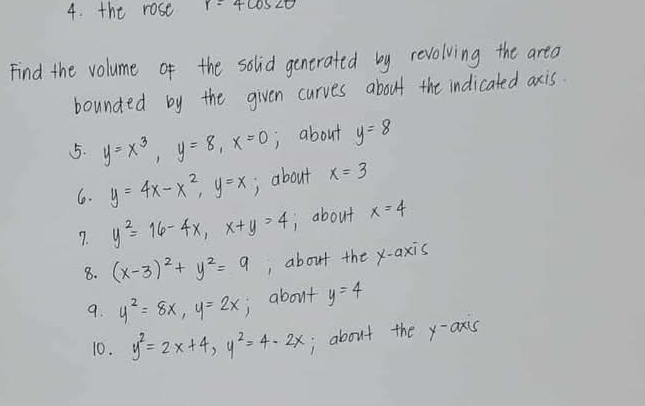 4. the rose r = 4 cos 2θ
Find the volume of the solid generated by revolving the area
bounded by the given curves about the indicated axis.
5. y = x³, y = 8, x = 0; about y = 8
6. y = 4x - x², y = x; about x = 3
7. y² = 16 - 4x, x + y = 4; about x = 4
8. (x-3)² + y² = 9, about the y-axis
9. y² = 8x, y = 2x; about y = 4
10. y² = 2x + 4, y² = 4 - 2x; about the y-axis